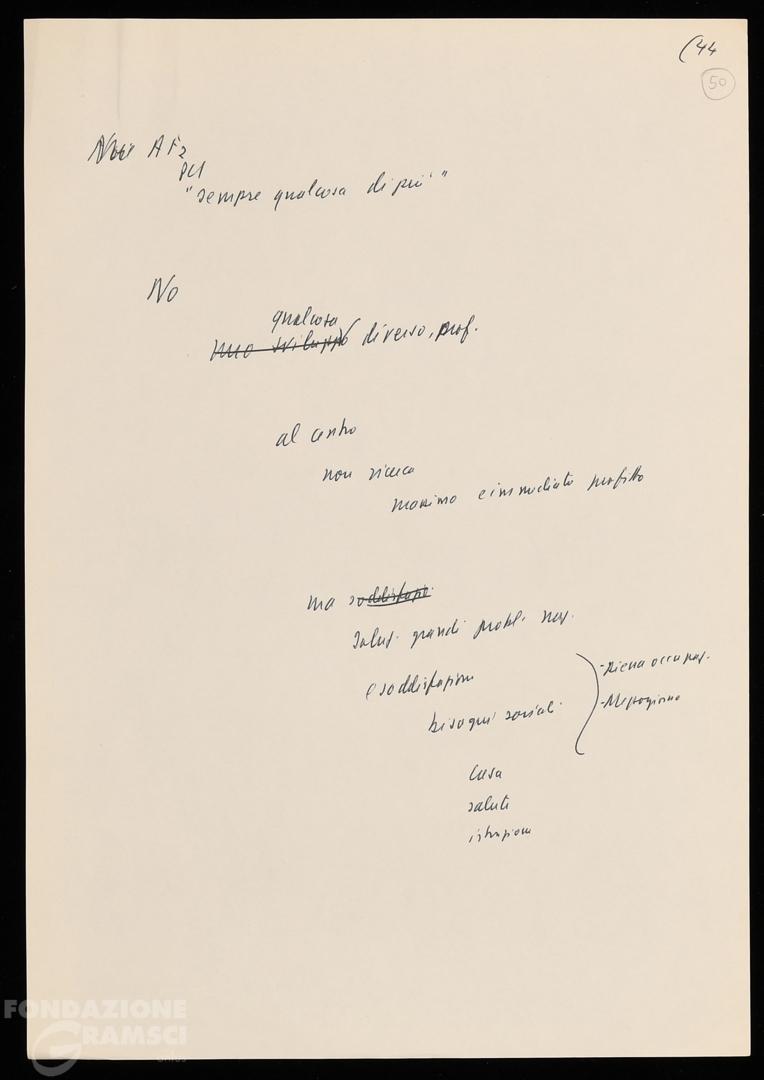 (44
50
PCI
"sempre qualcosa di più"
No
qualcosa
uno sviluppo diverso, prof.
al centro
non ricerca
massimo e immediato profitto
ma soddisfazio
soluz. grandi probl. naz.
e soddisfazione
bisogni sociali
- Piena occupaz.
- Mezzogiorno
casa
salute
istruzione
FONDAZIONE
GRAMSCI
onlus